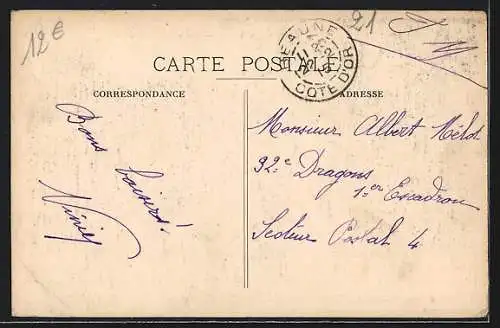 12€
21
BEAUNE
CÔTE D'OR
CARTE POSTALE
CORRESPONDANCE
ADRESSE
Bons baisers!
Monsieur Albert
92e Dragons
1er Escadron
Secteur Postal 4